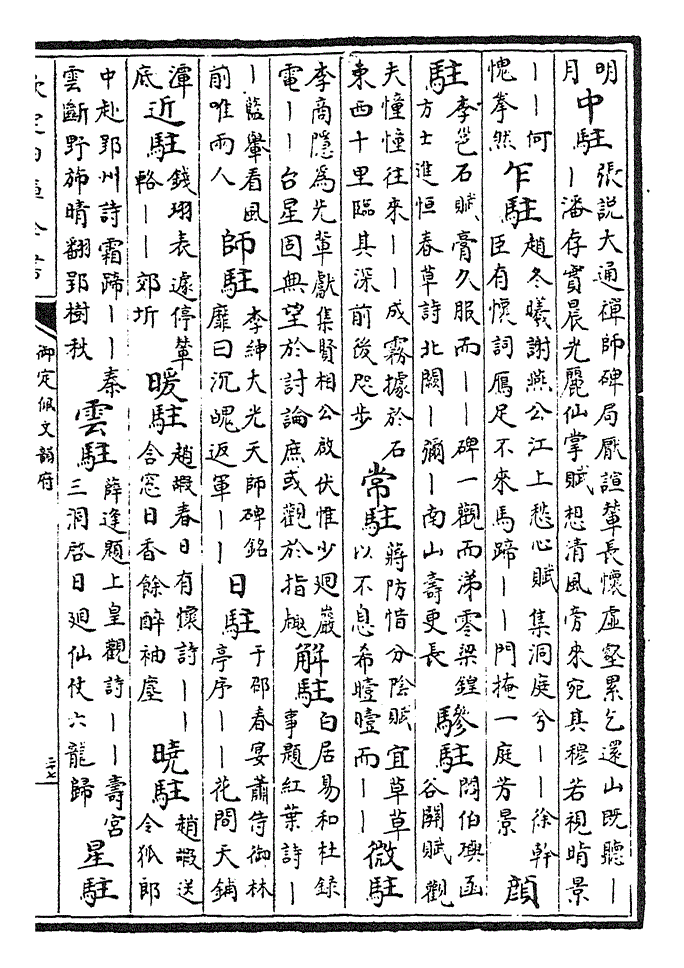 明月中駐張說大通禪師碑局厭諠輦長懷虛壑累乞還山既聽——潘存實晨光麗仙掌賦想清風旁來宛其穆若視晴景
——何愧拳然乍駐趙冬曦謝燕公江上愁心賦集洞庭兮——徐幹臣有懷詞鴈足不來馬蹄——門掩一庭芳景顔
駐李邕石賦膏久服而——碑一觀而涕零梁鍠方士進恒春草詩北闕—彌—南山壽更長驂駐閻伯璵函谷關賦觀
夫憧憧往來——成霧據於石東西十里臨其深前後咫步常駐蔣防惜分陰賦宜草草以不息希曀曀而——微駐
李商隱為先輩獻集賢相公啟伏惟少廻嚴電——台星固無望於討論庶或觀於指趣解駐白居易和杜録事題紅葉詩—
—籃轝看風前唯兩人師駐李紳大光天師碑銘靡曰沉魄返軍——日駐于邵春宴蕭侍御林亭序——花間天鋪
潭底近駐錢珝表遽停輦輅——郊圻暖駐趙嘏春日有懷詩——含窓日香餘醉袖塵曉駐趙嘏送令狐郎
中赴郢州詩霜蹄——秦雲斷野斾晴翻郢樹秋雲駐薛逢題上皇觀詩——壽宮三洞啓日廻仙仗六龍歸星駐
欽定四庫全書
御定佩文韻府